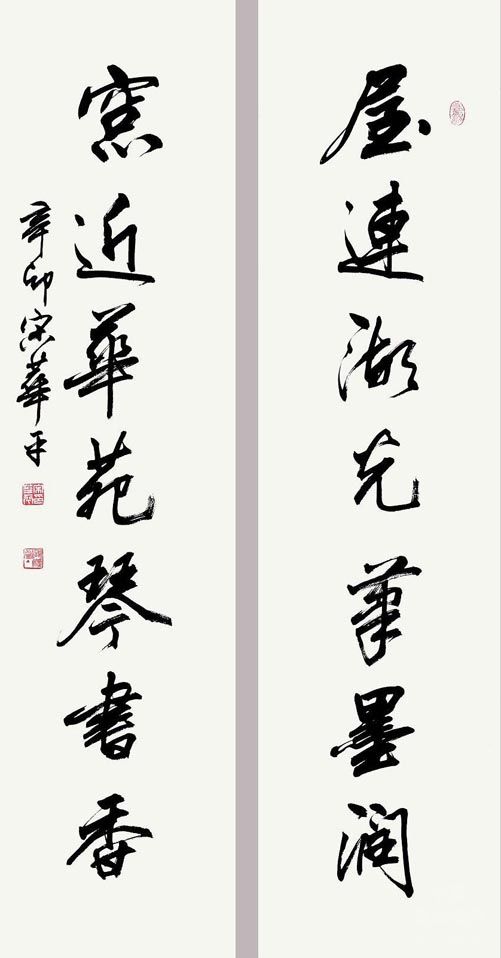 屋連湖光筆墨潤
窓近華苑琴書香
辛卯宋華平